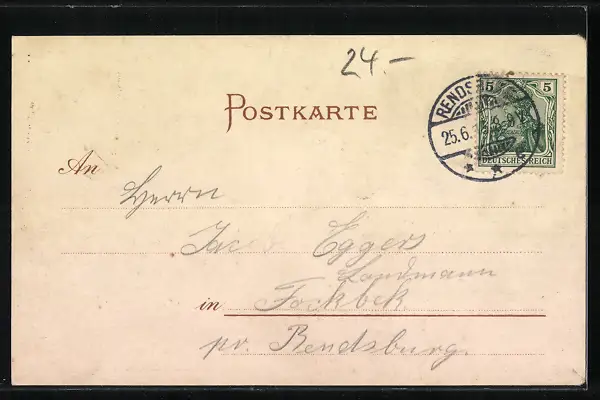 24.-
POSTKARTE
5 5
RENDSB
25.6.
DEUTSCHES REICH
An
Herrn
Jac Eggers
Landmann
in Fockbek
pr. Rendsburg.